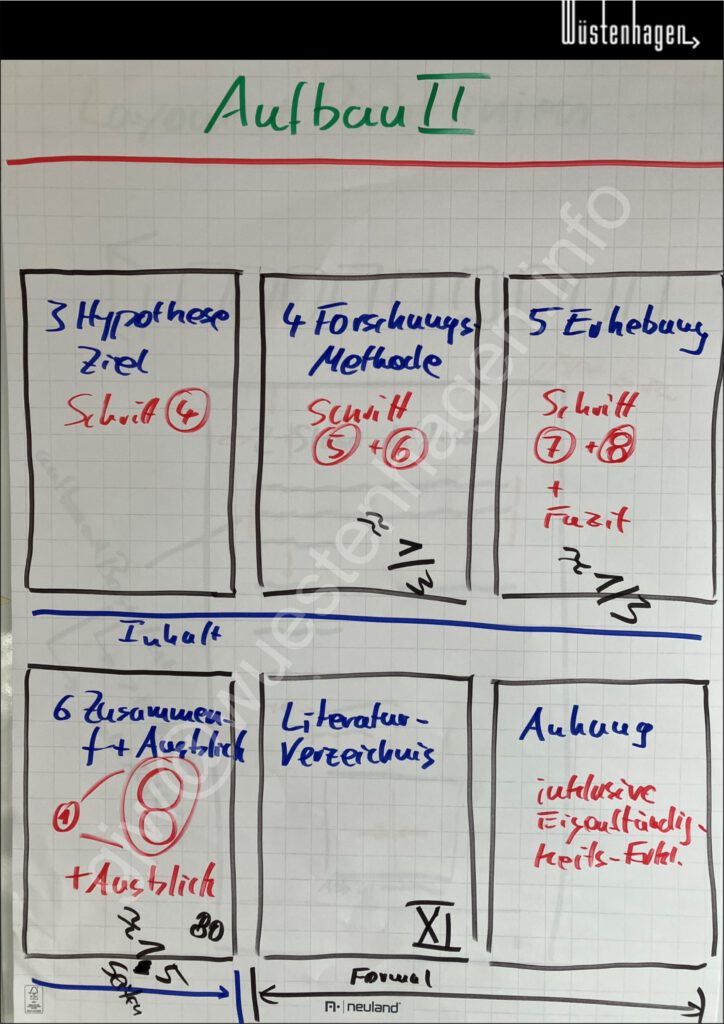 Wüstenhagen
Aufbau II
3 Hypothese
Ziel
Schritt 4
4 Forschungs-
Methode
Schritt
5 + 6
≈ 1/3
5 Erhebung
Schritt
7 + 8
+
Fazit
≈ 1/3
Inhalt
6 Zusammen-
f + Ausblick
1
8
+ Ausblick
30
≈ 1.5
Seiten
Literatur-
Verzeichnis
XI
Anhang
inklusive
Eigenständig-
keits-Erkl.
Formal
neuland